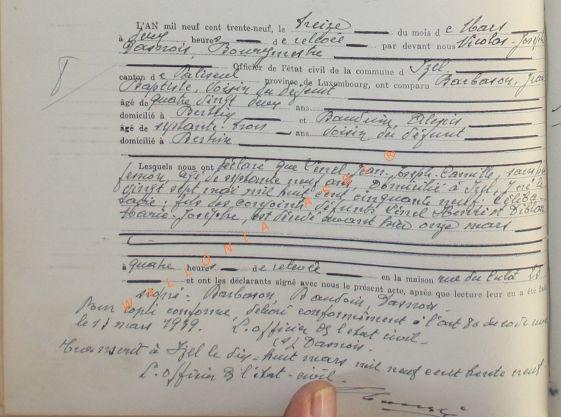 L'AN mil neuf cent trente-neuf, le treize du mois de Mars
à deux heures de relevée par devant nous Nicolas-Joseph
Dasnois, Bourgmestre
Officier de l'état civil de la commune d
canton de Paliseul province de Luxembourg, ont comparu Barbason, Jean
Baptiste, voisin du défunt
âgé de quatre vingt deux ans
domicilié à Bertrix et Baudoin, Alexis
âgé de septante-trois ans voisin du défunt
domicilié à Bertrix
Lesquels nous ont déclaré que Jean-Joseph-Camille, sans pro
fession, âgé de septante neuf ans, domicilié à né le
vingt sept mai mil huit cent cinquante neuf, céliba
taire, fils des conjoints défunts Henri et
Marie-Josèphe, est décédé avant hier onze mars
à quatre heures de relevée en la maison rue du
et ont les déclarants signé avec nous le présent acte, après lecture leur en a été
signé: Barbason, Baudoin, Dasnois.
Pour copie conforme, délivré conformément à l'art 80 du code civil
le 13 mars 1939. L'officier de l'état civil-
(s) Dasnois.
Transcrit à le dix-huit mars mil neuf cent trente neuf
L'officier de l'état-civil.
WALLONIA ASBL ®